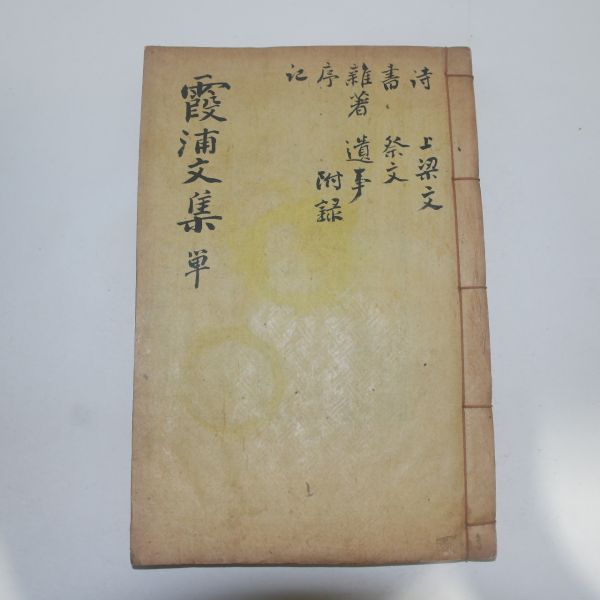 霞浦文集 単
诗 上梁文
書 祭文
雜著 遺事
序 附録
记